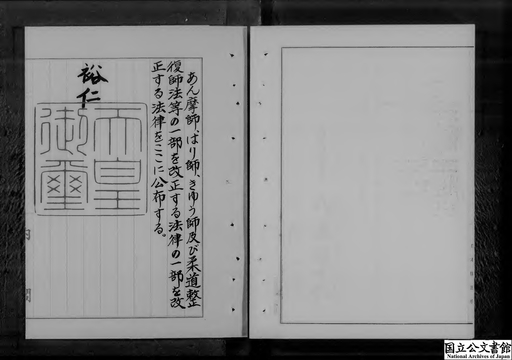 あん摩師、はり師、きゆう師及び柔道整
復師法等の一部を改正する法律の一部を改
正する法律をここに公布する。
裕仁
天皇
御璽
国立公文書館
National Archives of Japan